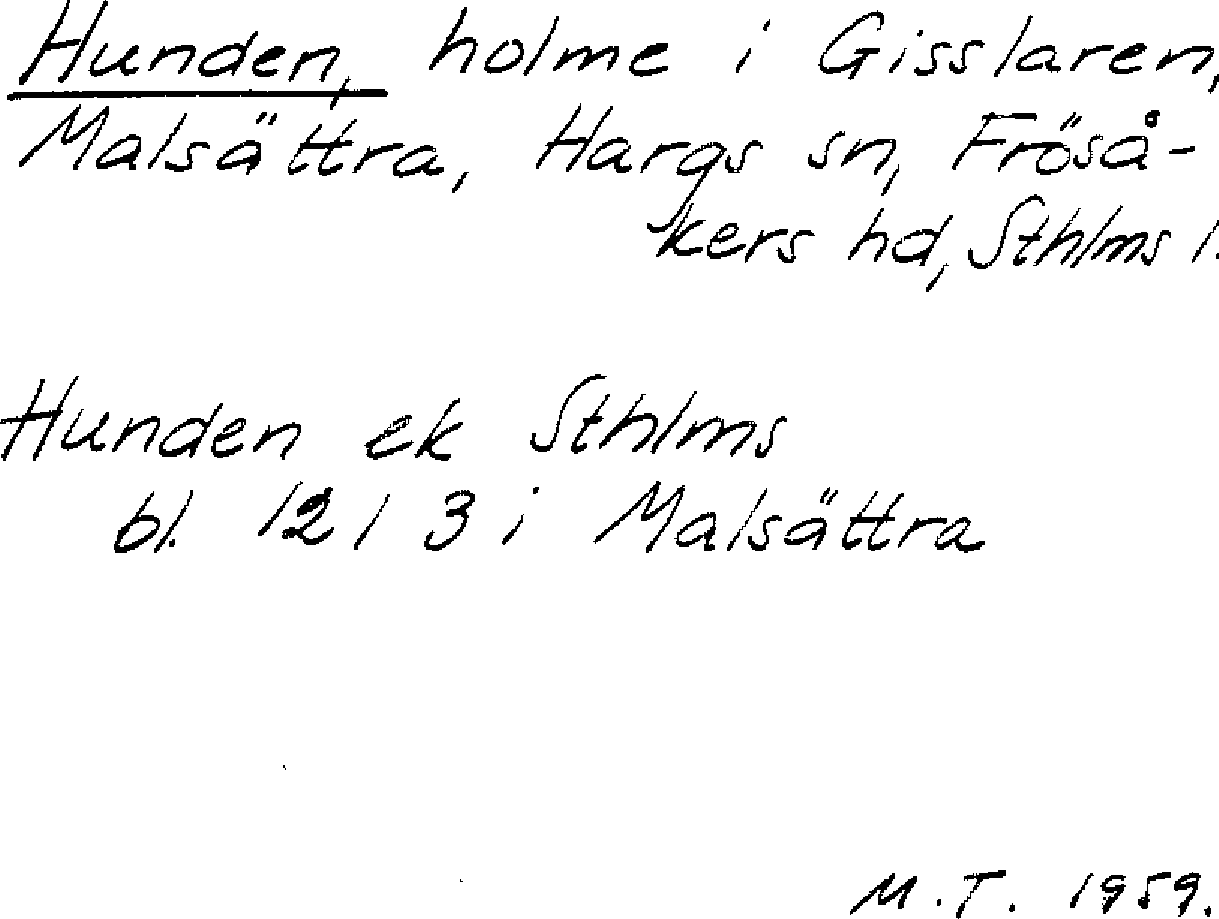 Hunden, holme i Gisslaren,
Malsättra, Hargs sn, Fröså-
kers hd, Sthlms l.
Hunden ek Sthlms
bl. 12 / 3 i Malsättra
M.T. 1959.